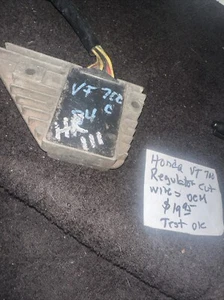 VT 700
C
84
HR
III
Honda VT 700
Regulator cut
wires OEM
$19.95
Test OK